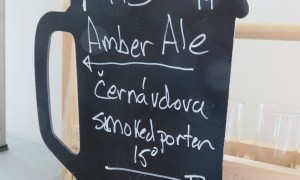 Amber Ale
Černávdova
smokedporter
15°